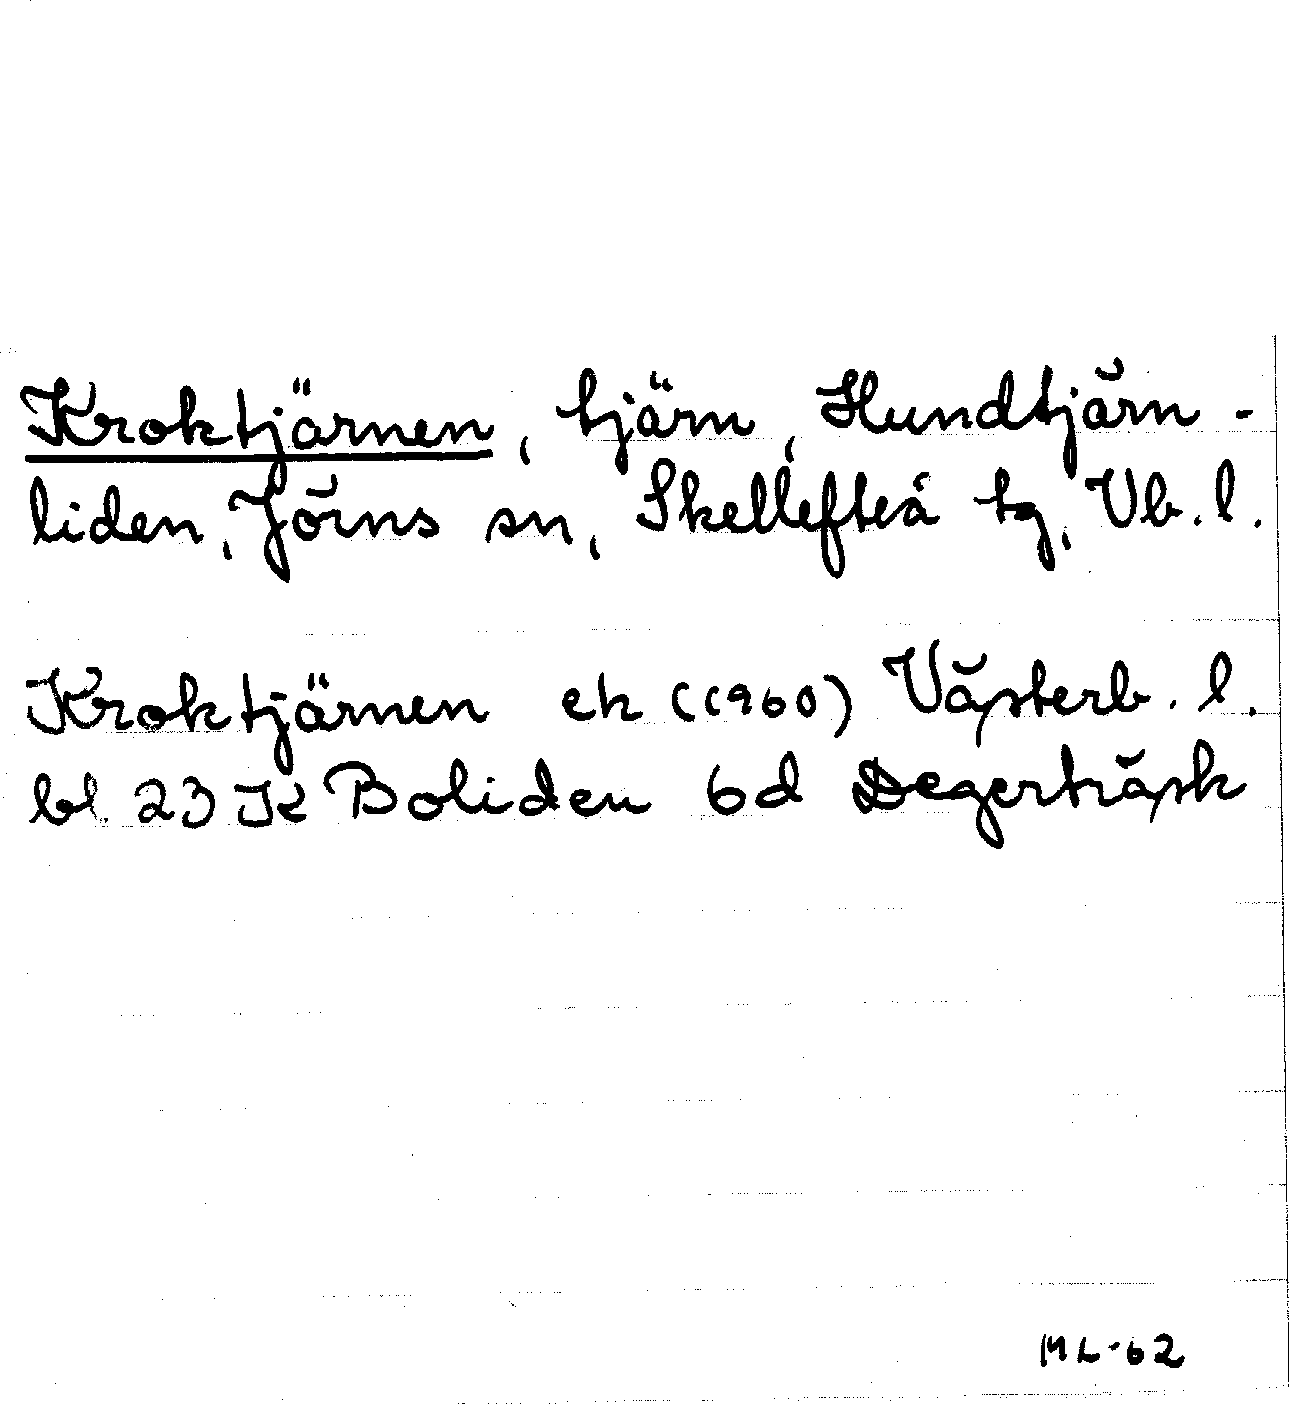 Kroktjärnen, tjärn, Hundtjärn-
liden, Jörns sn, Skellefteå tg, Vb. l.
Kroktjärnen ek (1960) Västerb. l.
bl. 23 K Boliden 6d Degerträsk
ML-62